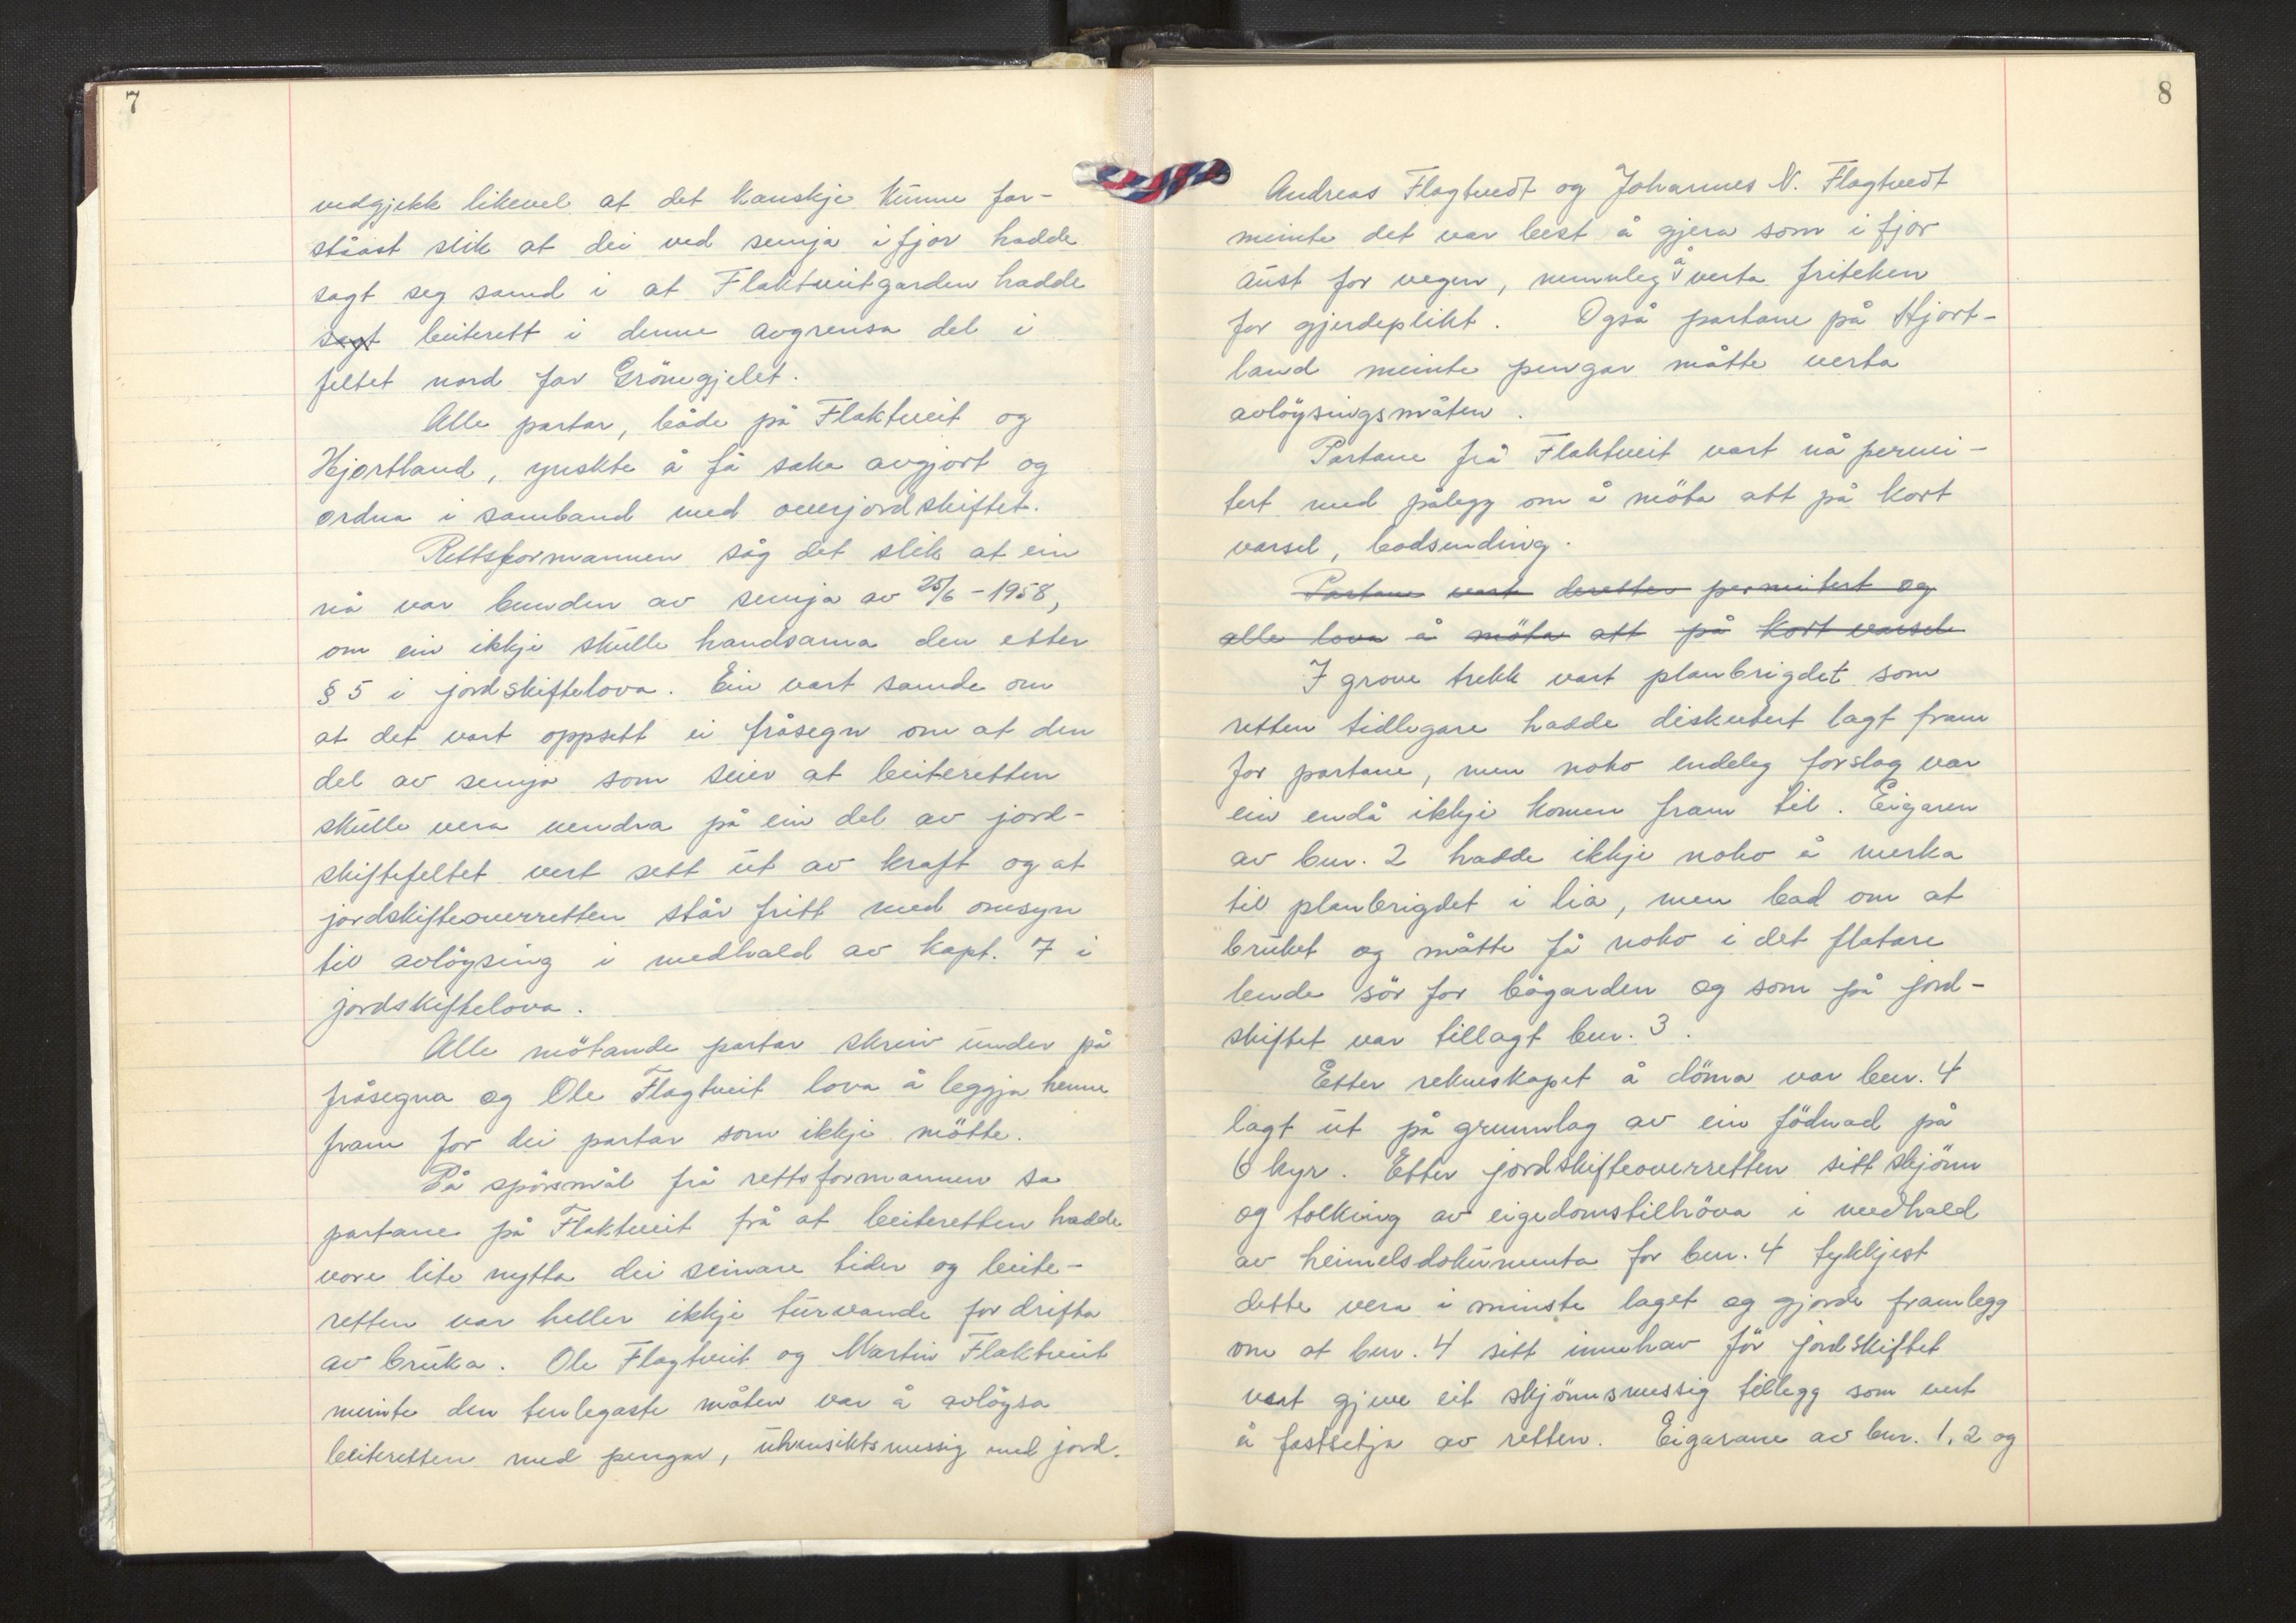 7
vedgjekk likevel at det kanskje kunne for-
ståast slik at dei ved semja i fjor hadde
sagt seg samd i at Flaktveitgarden hadde
sagt beiterett i denne avgrensa del i
feltet nord for Grönegjelet.
Alle partar, både på Flaktveit og
Hjortland, ynskte å få saka avgjort og
ordna i samband med overjordskiftet.
Rettsformannen såg det slik at ein
nå var bunden av semja av 25/6-1958,
om ein ikkje skulle handsama den etter
§ 5 i jordskiftelova. Ein vart samde om
at det vart oppsett ei fråsegn om at den
del av semja som seier at beiteretten
skulle vera uendra på ein del av jord-
skiftefeltet vert sett ut av kraft og at
jordskifteoverretten står fritt med omsyn
til avlöysing i medhald av kapt. 7 i
jordskiftelova.
Alle mötande partar skreiv under på
fråsegna og Ole Flagtveit lova å leggja henne
fram for dei partar som ikkje mötte.
På spörsmål frå rettsformannen sa
partane på Flaktveit frå at beiteretten hadde
vore lite nytta dei seinare tider og beite-
retten var heller ikkje turvande for drifta
av bruka. Ole Flagtveit og Martin Flaktveit
meinte den tenlegaste måten var å avlöysa
beiteretten med pengar, uhensiktsmessig med jord.
8
Andreas Flagtvedt og Johannes N. Flagtvedt
meinte det var best å gjera som i fjor
aust for vegen, nemnleg å verta friteken
for gjerdeplikt. Også partane på Hjort-
land meinte pengar måtte verta
avlöysingsmåten.
Partane frå Flaktveit vart nå permi-
tert med pålegg om å möta att på kort
varsel, bodsending.
Partane vart deretter permitert og
alle lova å möta att på kort varsel
I grove trekk vart planbrigdet som
retten tidlegare hadde diskutert lagt fram
for partane, men noko endeleg forslag var
ein endå ikkje komen fram til. Eigaren
av bnr. 2 hadde ikkje noko å merka
til planbrigdet i lia, men bad om at
bruket og måtte få noko i det flatare
lende sör for bögarden og som på jord-
skiftet var tillagt bnr. 3.
Etter rekneskapet å döma var bnr. 4
lagt ut på grunnlag av ein födnad på
6 kyr. Etter jordskifteoverretten sitt skjönn
og tolking av eigedomstilhöva i medhald
av heimelsdokumenta for bnr. 4 tykkjest
dette vera i minste laget og gjorde framlegg
om at bnr. 4 sitt innehav för jordskiftet
vart gjeve eit skjönsmessig tillegg som vert
å fastsetja av retten. Eigarane av bnr. 1, 2 og